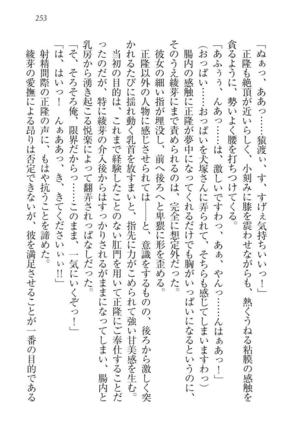 253
「ぬぁっ、ああっ……猿渡ぃ、す、すげぇ気持ちいいっ！」
正隆も絶頂が近いらしく、小刻みに膝を震わせながら、熱くうねる粘膜の感触を
貪るように、勢いよく腰を打ちつけてくる。
「あぁふぅ、んあっ……は、激しいですわっ、あぁ、やん……んはぁあっ！」
（おっぱい……おっぱいを犬塚さんに弄られて、そちらも感じてしまいますわっ）
腸内の感触に正隆が夢中になってくれればくれるほど、胸が疎かになるというのに、
そんなのを綾芽にまで責められるのは、完全に想定外だった。
彼女の細い指が吸いつき、前へ後ろへと卑猥に形を歪める。
正隆以外の人物に感じさせられては――と、意識するものの、後ろから激しく突
かれるたびに揺れ動く乳首を放すまいと、指先に力がこめられて強い甘美感を生む。
当初の目的は、これまで経験したことのない肛門を用いて正隆にご奉仕することだ
ったのだが、特に綾芽の介入後からはすっかりされるがままになってしまい、腸内と
乳房から湧き起こる悦楽によって翻弄されっぱなしだった。
「そ、そろそろ俺、限界だから……このまま、一気にいくぞっ！」
「は、はいっ！　んぁああっ、き、きてくださいぃぃ!!」
射精間際の正隆の声に、もはや抗うことを諦めた。
綾芽の愛撫による昂りは否定できないが、彼を満足させることが一番の目的である